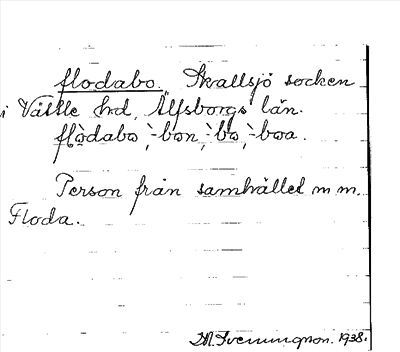 flodabo. Skallsjö socken
i Vättle hrd, Älfsborgs län.
flòdabo, -bon, -bo, -boa.
Person från samhället m m.
Floda.
1938.